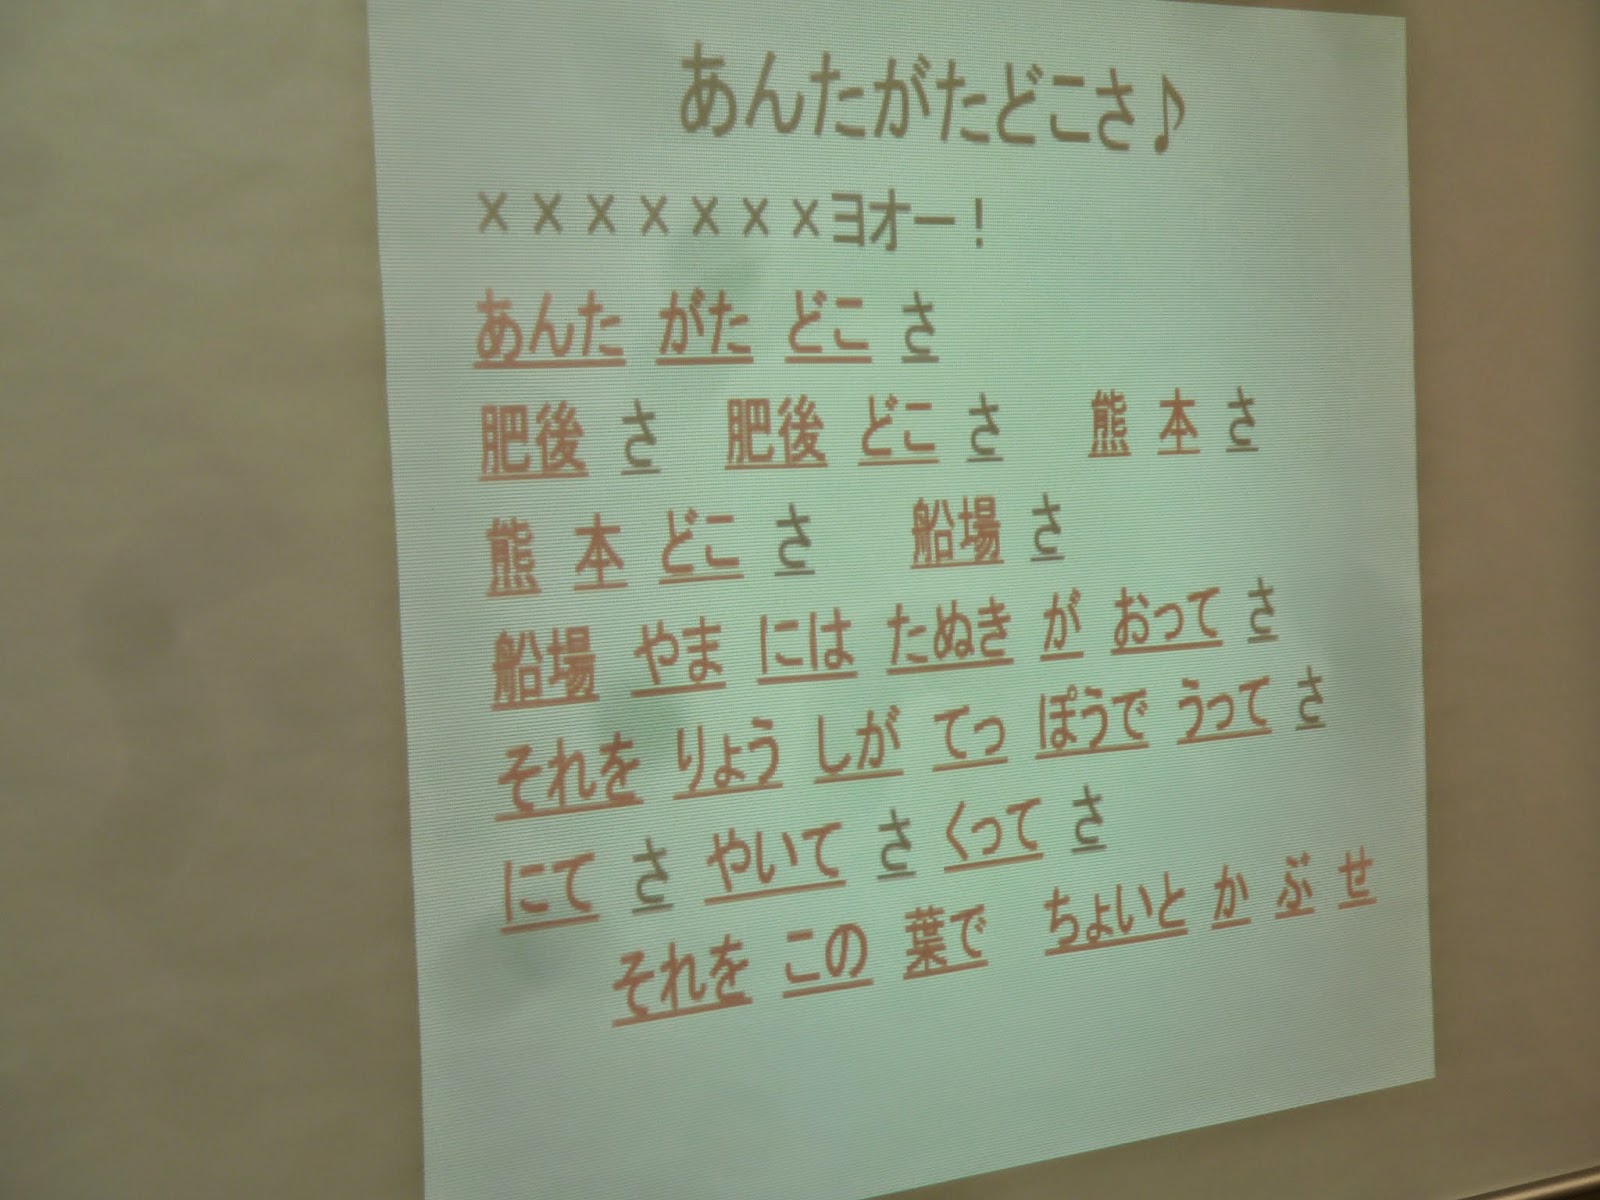 あんたがたどこさ♪
×××××××ヨオー！
あんた がた どこ さ
肥後 さ 肥後 どこ さ 熊 本 さ
熊 本 どこ さ 船場 さ
船場 やま には たぬき が おって さ
それを りょう しが てっ ぽうで うって さ
にて さ やいて さ くって さ
それを この 葉で ちょいと か ぶ せ